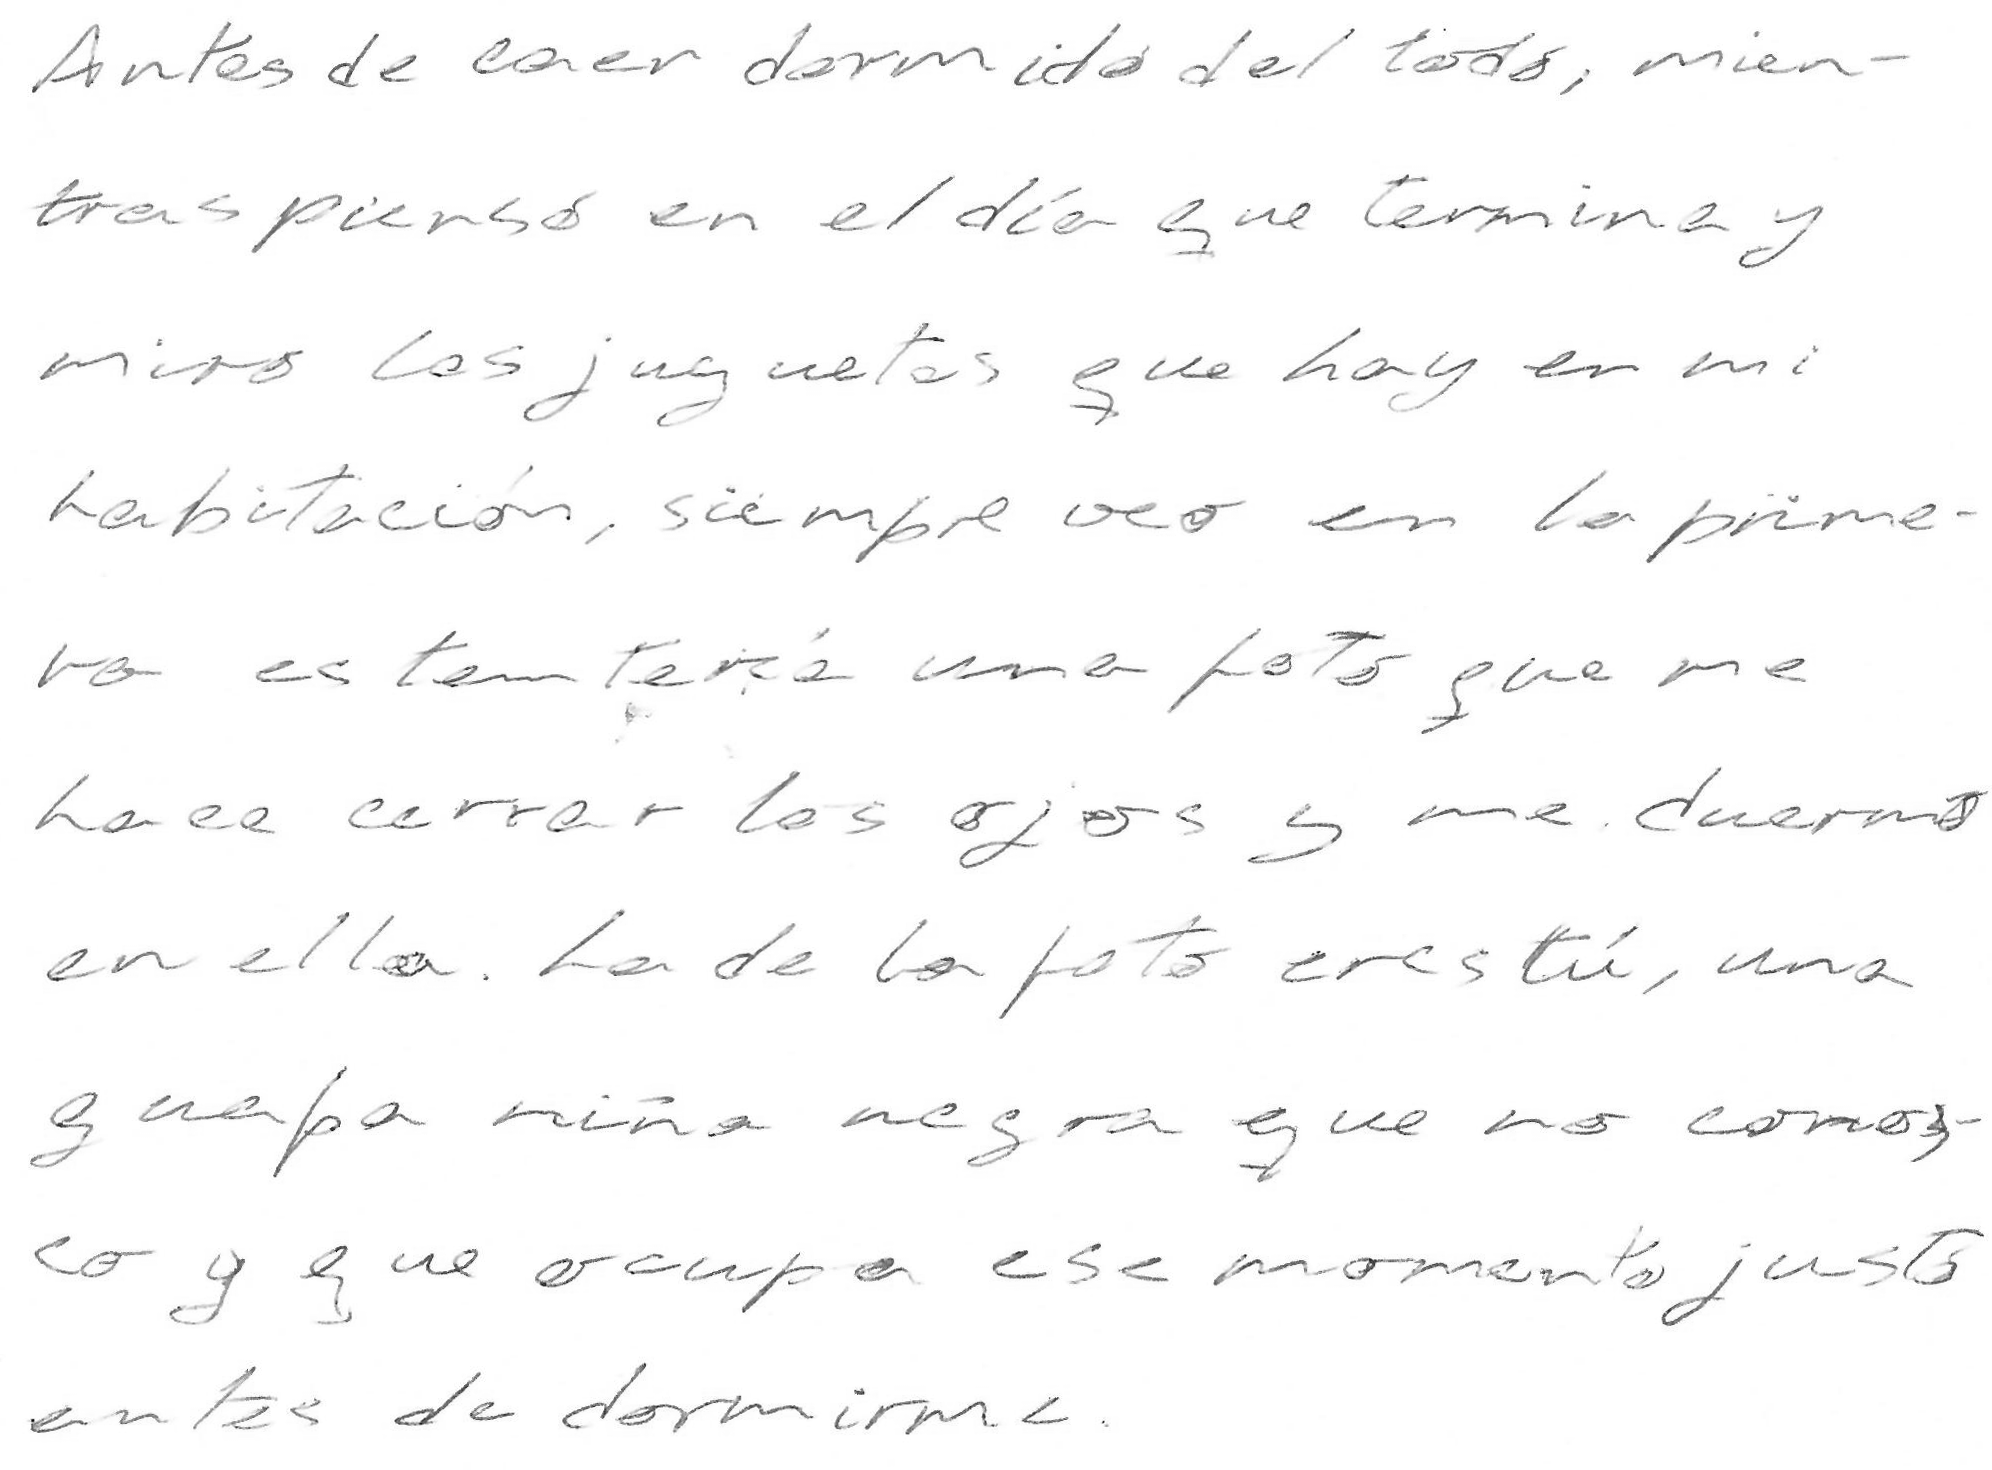 Antes de caer dormido del todo, mien-
tras pienso en el día que termina y
miro los juguetes que hay en mi
habitación, siempre veo en la prime-
ra estantería una foto que me
hace cerrar los ojos y me duermo
en ella. La de la foto eres tú, una
guapa niña negra que no conoz-
co y que ocupa ese momento justo
antes de dormirme.